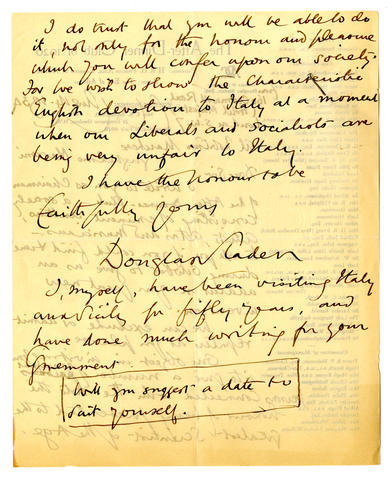 I do trust that you will be able to do
it, not only for the honour and pleasure
which you will confer upon our society.
For we wish to show the characteristic
English devotion to Italy at a moment
when our Liberals and Socialists are
being very unfair to Italy.
I have the honour to be
Faithfully yours
Douglas Sladen
I, myself, have been visiting Italy
and Sicily for fifty years, and
have done much writing for your
Government.
Will you suggest a date to
suit yourself.